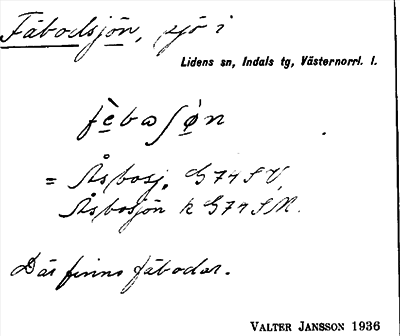 Fäbodsjön, sjö i
Lidens sn, Indals tg, Västernorrl. l.
fèbaʃø̀n
= Åsbosj. G74SV,
Åsbosjön k G74SN.
Där finns fäbodar.
VALTER JANSSON 1936